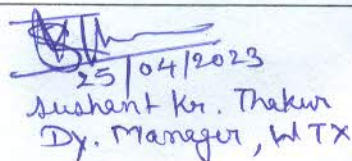 25/04/2023
Sushant Kr. Thakur
Dy. Manager, WTX